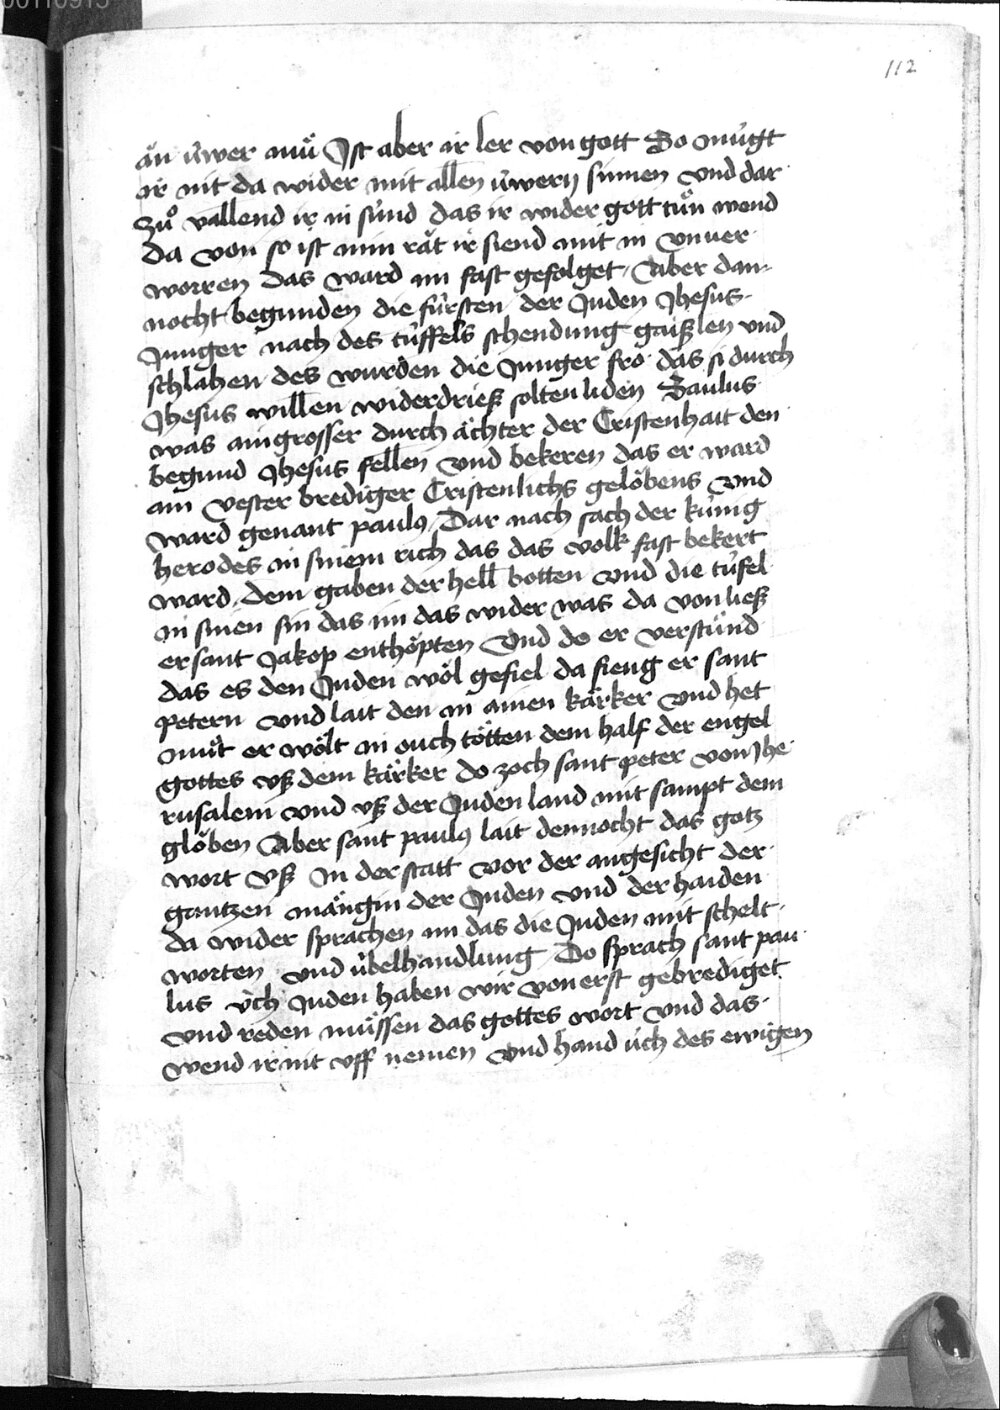 00110915
112
än úwer mü Ist aber ir ler von gott So múgt
ir nit da wider mit allen úwern sinnen vnd dar
zuͦ vallend ir in súnd das ir wider gott tuͤn wend
da von so ist min rät ir siend mit in vnuer
worren das ward im fast gefolget Aber dan
nocht begunden die fúrsten der Juden Jhesus
Junger nach des túffels schendung gaißlen vnd
schlahen des wurden die Junger fro das si durch
Jhesus willen widerdrieß solten liden Saulus
was ain grosser durch ächter der Cristenhait den
begund Jhesus fellen vnd bekeren das er ward
ain vester brediger Cristenlichs gelöbens vnd
ward genant paulus Dar nach sach der kúnig
herodes in sinem rich das das volk fast bekert
ward dem gaben der hell botten vnd die túfel
in sinen sin das im das wider was da von ließ
er sant Jakop enthöpten Vnd do er verstünd
das es den Juden wöl gefiel da fieng er sant
petern vnd lait den in ainen kärker vnd het
müt er wölt in ouch tötten dem half der engel
gottes vß dem kärker do zoch sant peter von Jhe
rusalem vnd vß der Juden land mit sampt dem
glöben Aber sant paulus lait dennocht das gotz
wort vß In der statt vor der angesicht der
gantzen mängin der Juden vnd der haiden
da wider sprachen im das die Juden mit schelt
worten vnd úbelhandlung Do sprach sant pau
lus v́ch Juden haben wir von erst gebrediget
vnd reden müssen das gottes wort vnd das
wend ir nit vff nemen vnd hand úch des ewigen